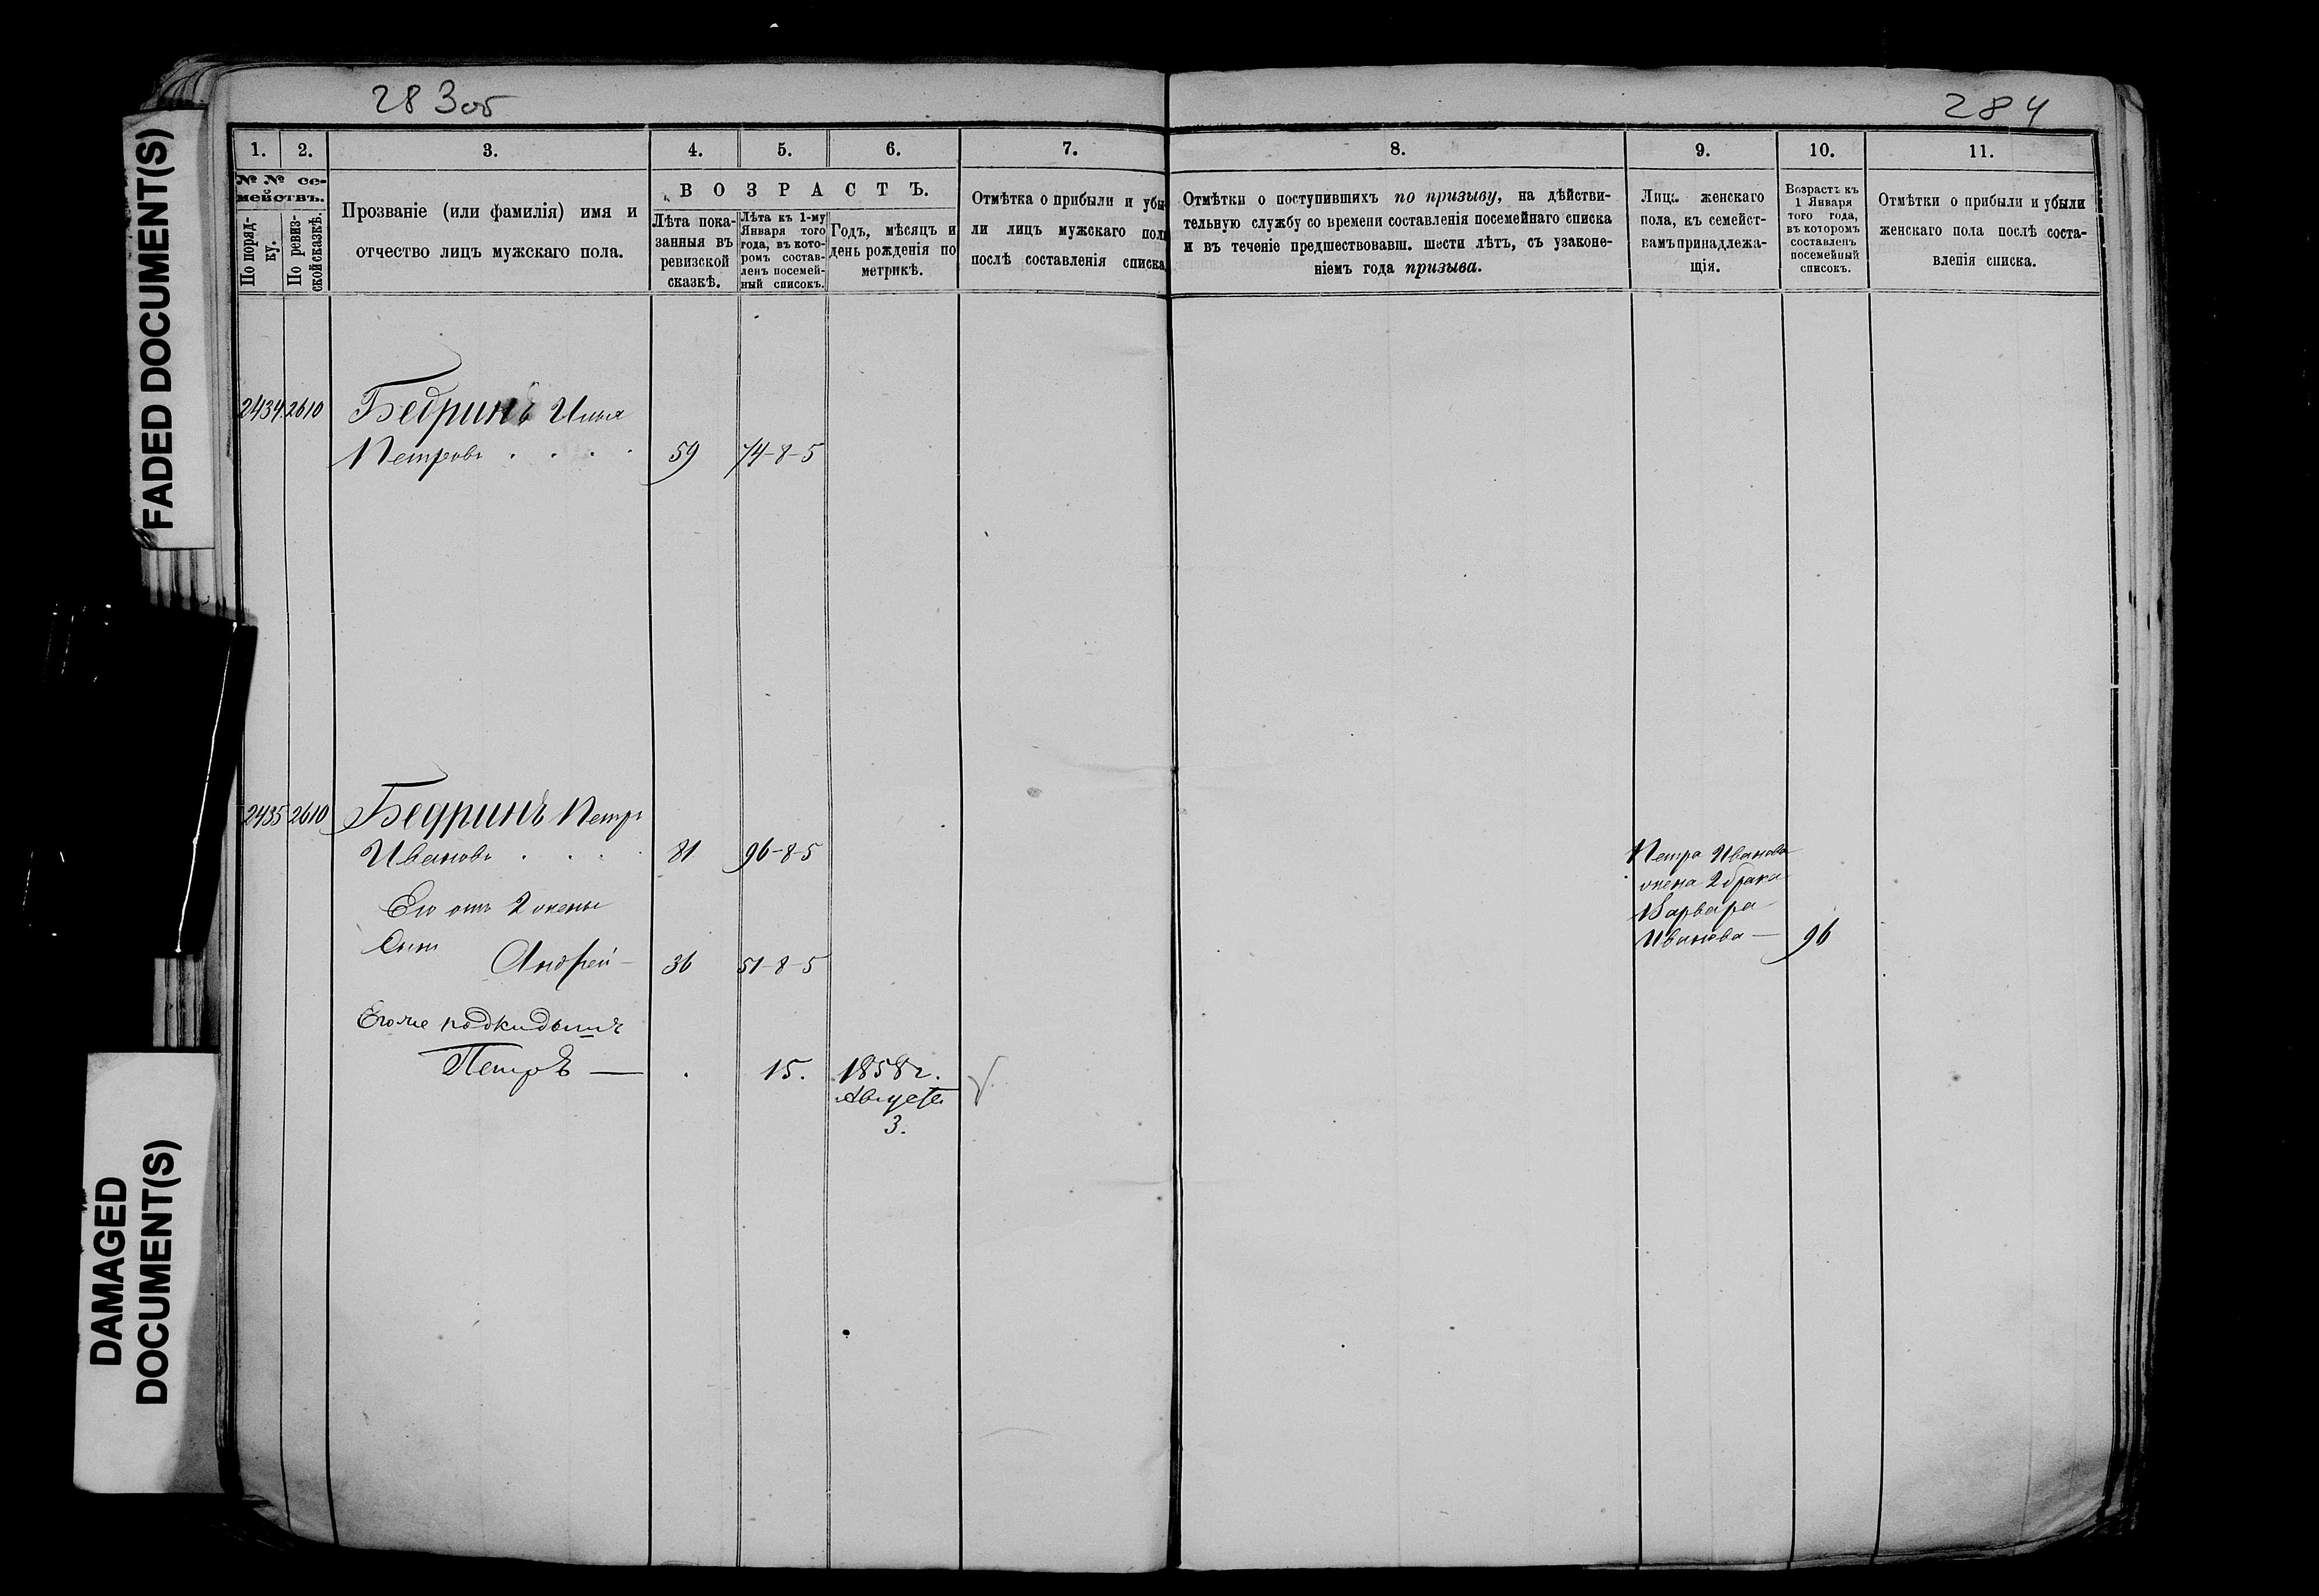 FADED DOCUMENT(S)
DAMAGED
DOCUMENT(S)
283об
284
1.
2.
3.
4.
5.
6.
7.
8.
9.
10.
11.
№ № се-
мействъ.
По поряд-
ку.
По ревиз-
ской сказкѣ.
Прозваніе (или фамилія) имя и
отчество лицъ мужскаго пола.
ВОЗРАСТЪ.
Лѣта пока-
занныя въ
ревизской
сказкѣ.
Лѣта къ 1-му
Января того
года, въ кото-
ромъ состав-
ленъ посемей-
ный списокъ.
Годъ, мѣсяцъ и
день рожденія по
метрикѣ.
Отмѣтка о прибыли и убы-
ли лицъ мужскаго пола
послѣ составленія списка.
Отмѣтки о поступившихъ по призыву, на дѣйстви-
тельную службу со времени составленія посемейнаго списка
и въ теченіе предшествовавш. шести лѣтъ, съ узаконе-
ніемъ года призыва.
Лица женскаго
пола, къ семейст-
вамъ принадлежа-
щія.
Возрастъ къ
1 Января
того года,
въ которомъ
составленъ
посемейный
списокъ.
Отмѣтки о прибыли и убыли
женскаго пола послѣ соста-
вленія списка.
2434 2610 Бедринъ Илья
Петровъ . . . . 59 74-8-5
2435 2610 Бедринъ Петръ
Ивановъ . . . . 81 96-8-5
Его отъ 2 жены
сынъ
Андрей — 36 51-8-5
Его же подкидышъ
Петръ — . 15. 1858 г.
Августа
3.
Петра Иванова
жена 2 брака
Варвара
Иванова — 96